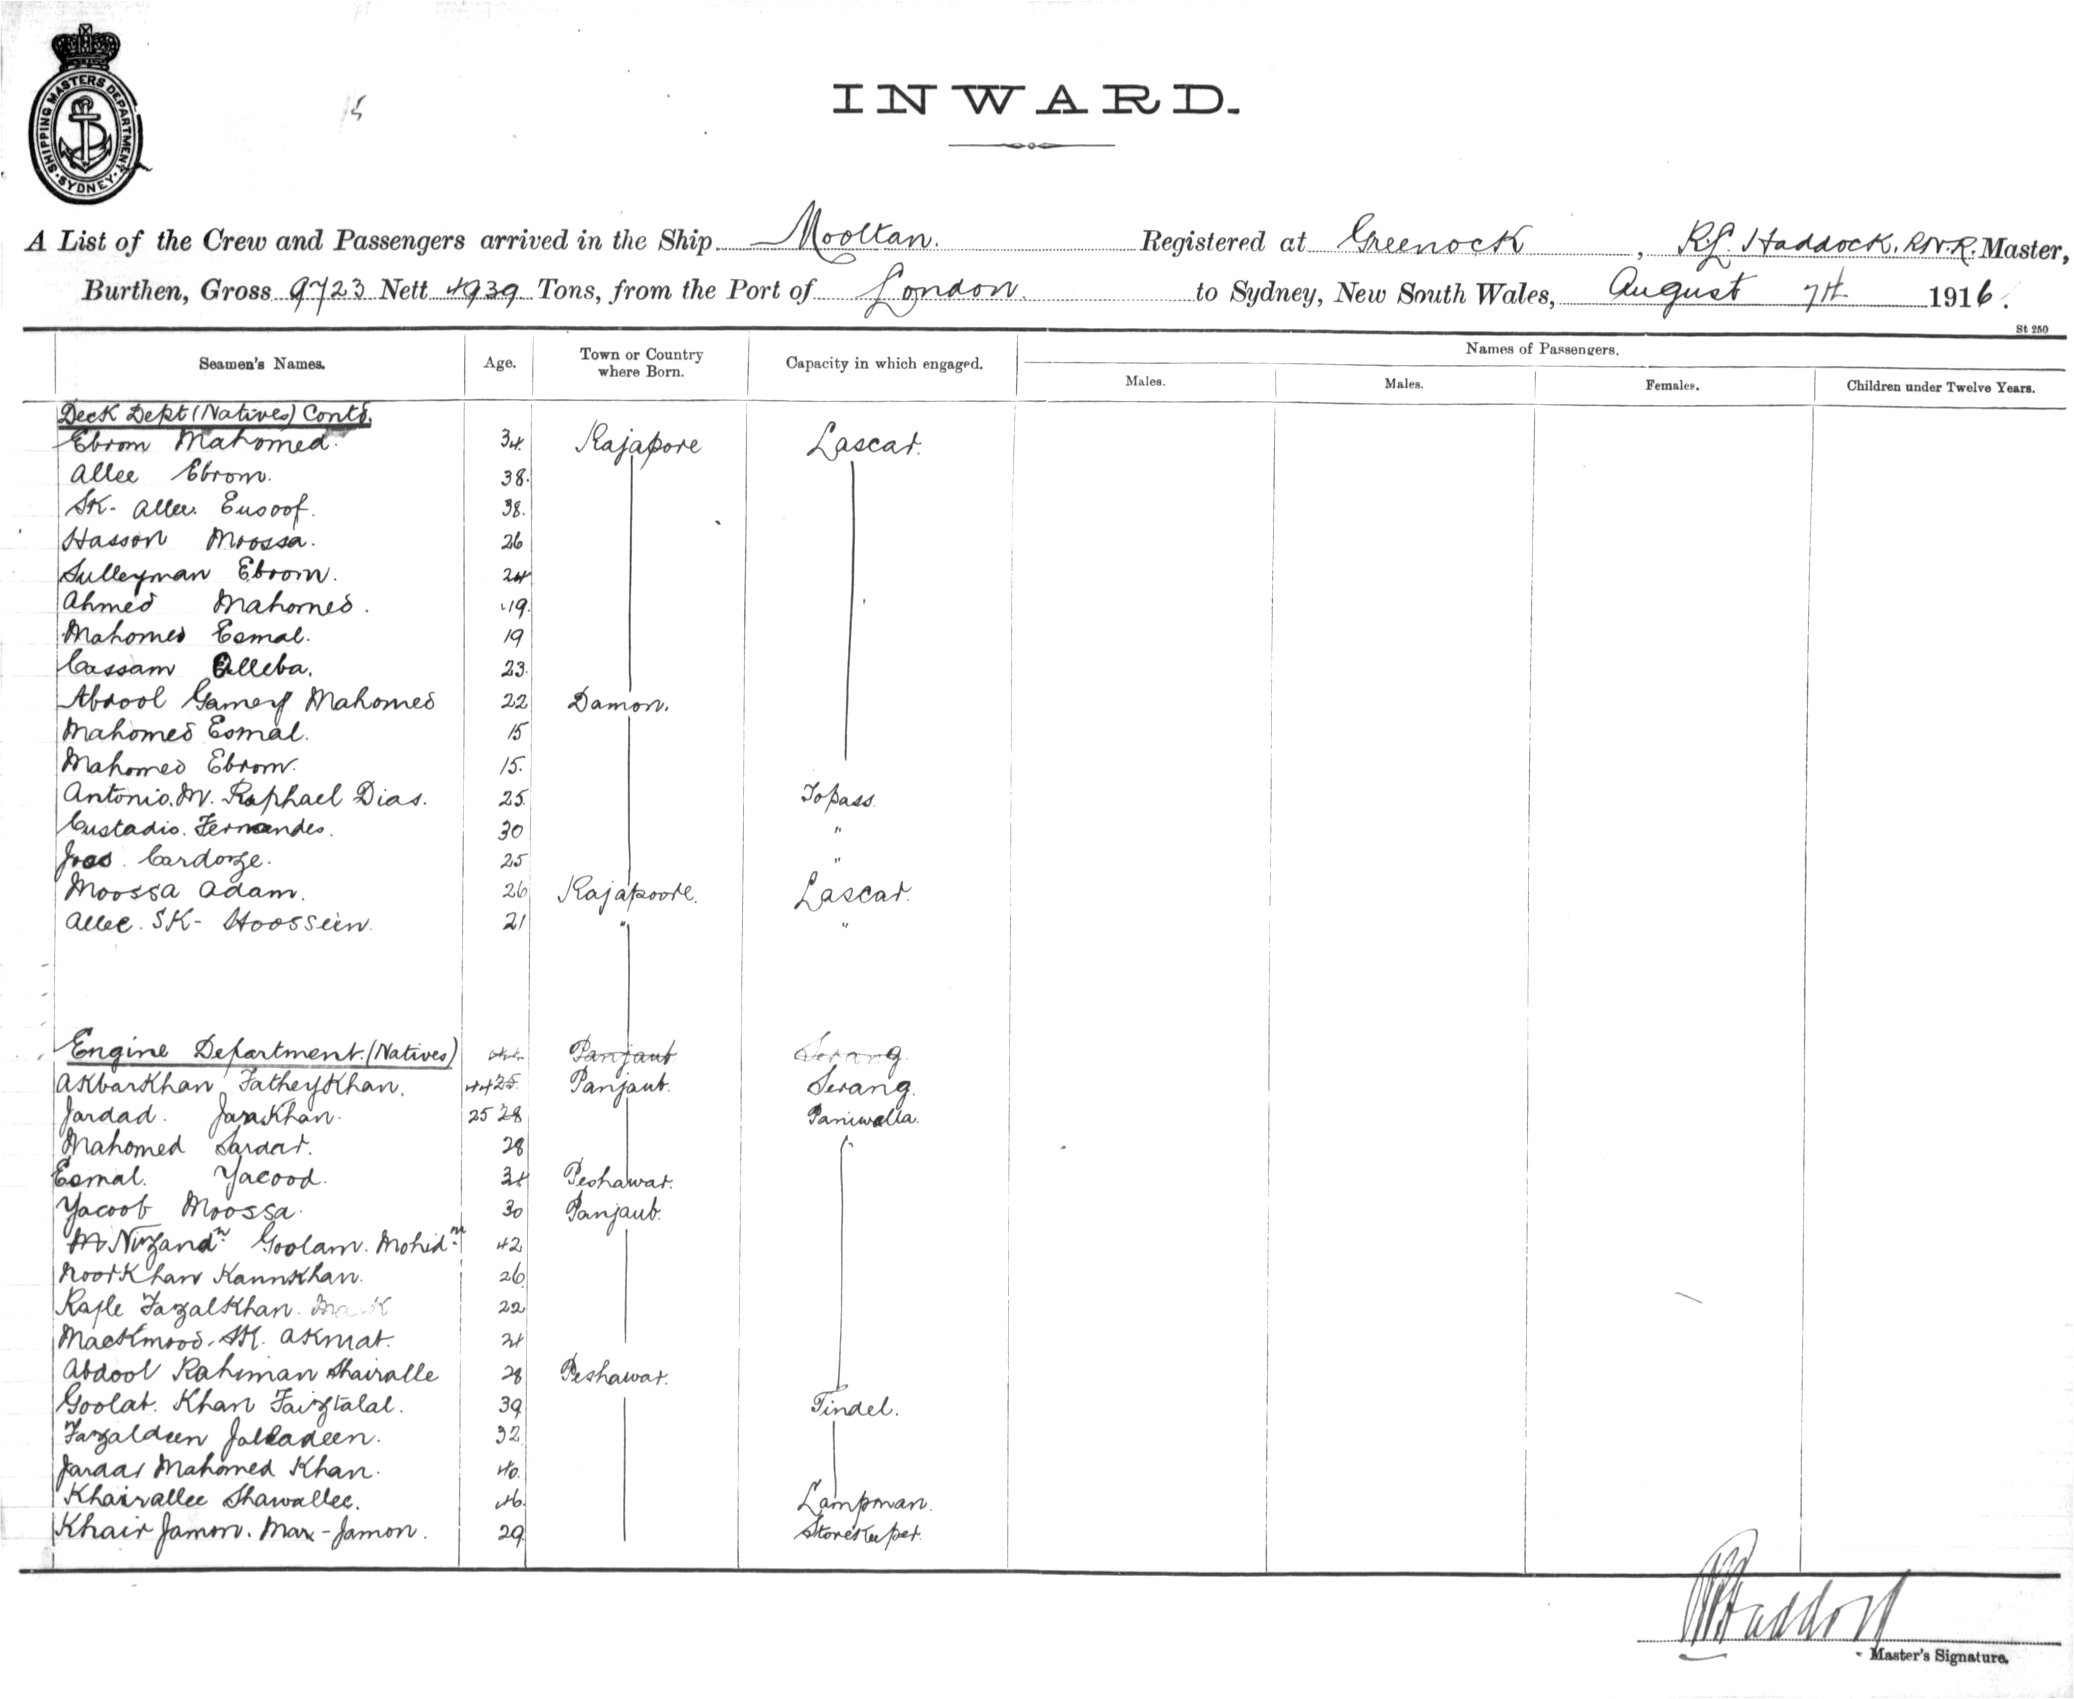 SHIPPING MASTERS DEPARTMENT
SYDNEY
INWARD.
A List of the Crew and Passengers arrived in the Ship Mooltan. Registered at Greenock, R.L. Haddock. R.N.R. Master,
Burthen, Gross 9723 Nett 4939 Tons, from the Port of London. to Sydney, New South Wales, August 7th 1916.
St 250
Seamen's Names. Age. Town or Country where Born. Capacity in which engaged. Names of Passengers.
Males. Males. Females. Children under Twelve Years.
Deck Dept (Natives) Contd.
Ebrom Mahomed. 34. Rajapore Lascar.
Allee Ebrom. 38.
SK- Allee. Eusoof. 38.
Hasson Moossa. 26
Sulleyman Ebrom. 24
Ahmed Mahomed. 19.
Mahomed Esmal. 19
Cassam Alleba. 23.
Abdool Gamey Mahomed 22 Damon.
Mahomed Esmal. 15
Mahomed Ebrom. 15.
Antonio. M. Raphael Dias. 25. Topass.
Custadio. Fernandes. 30 "
Joas. Cardoze. 25 "
Moossa Adam. 26 Rajapoore. Lascar.
Allee. SK- Hoossein. 21 " "
Engine Department. (Natives) 44 Panjaub Serang
AkbarKhan FatheyKhan. 44 25 Panjaub. Serang.
Jardad. JanaKhan. 25 28 Paniwalla.
Mahomed Sardar. 28
Esmal. Yacood. 34 Peshawar.
Yacoob Moossa. 30 Panjaub.
Goolam. Mohidn. 42
NoorKhan KannKhan. 26
Rafle FazalKhan. 22
Mackmood. SK. Akmat. 24
Abdool Rahiman Shairalle 28 Peshawar.
Goolab. Khan Faiztalal. 39 Tindel.
Fazaldeen Jalladeen. 32
Jardar Mahomed Khan. 40.
Khairallee Shawallee. 46. Lampman.
Khair Jamon. Max-Jamon. 29 Storekeeper.
R Haddock
Master's Signature.